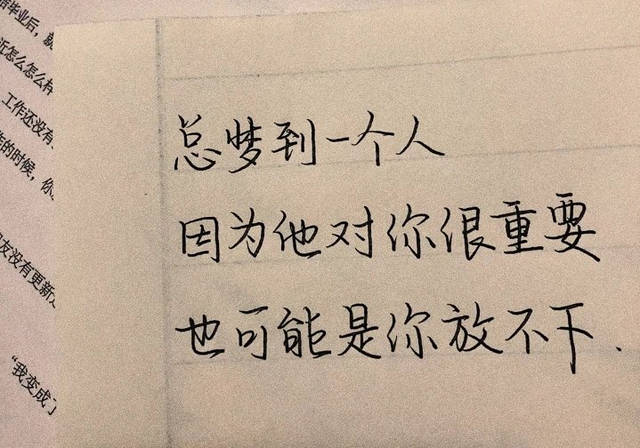 总梦到一个人
因为他对你很重要
也可能是你放不下.
毕业后，
近怎么怎么样
工作还没有
的时候，你
友没有更新
“我变成了